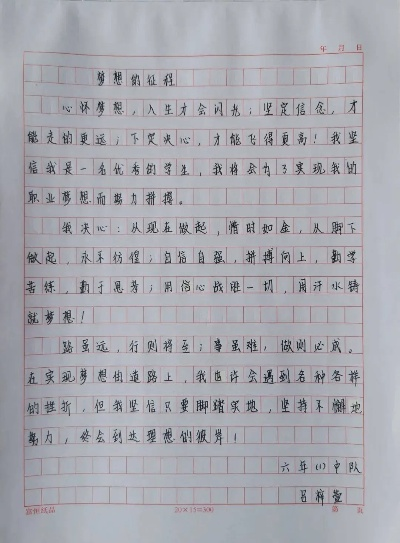 年 月 日
梦想的征程
心怀梦想，人生才会闪光；坚定信念，才
能走的更远；下定决心，才能飞得更高！我坚
信我是一名优秀的学生，我将会为了实现我的
职业梦想而努力拼搏。
我决心：从现在做起，惜时如金，从脚下
做起，永不彷徨；自信自强，拼搏向上，勤学
苦练，勤于思考；用信心战胜一切，用汗水铸
就梦想！
路虽远，行则将至；事虽难，做则必成。
在实现梦想的道路上，我也许会遇到各种各样
的挫折，但我坚信只要脚踏实地，坚持不懈地
努力，终会到达理想的彼岸！
六年(1)中队
吕梓萱
20×15=300
第 页